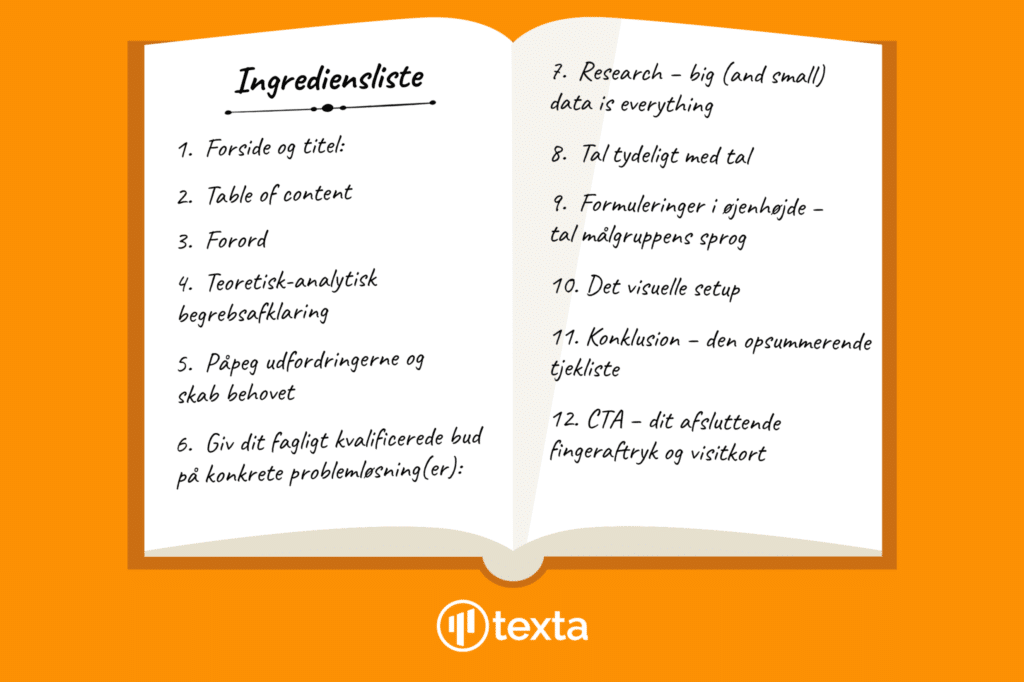 Ingrediensliste
1. Forside og titel:
2. Table of content
3. Forord
4. Teoretisk-analytisk
begrebsafklaring
5. Påpeg udfordringerne og
skab behovet
6. Giv dit fagligt kvalificerede bud
på konkrete problemløsning(er):
7. Research – big (and small)
data is everything
8. Tal tydeligt med tal
9. Formuleringer i øjenhøjde –
tal målgruppens sprog
10. Det visuelle setup
11. Konklusion – den opsummerende
tjekliste
12. CTA – dit afsluttende
fingeraftryk og visitkort
texta